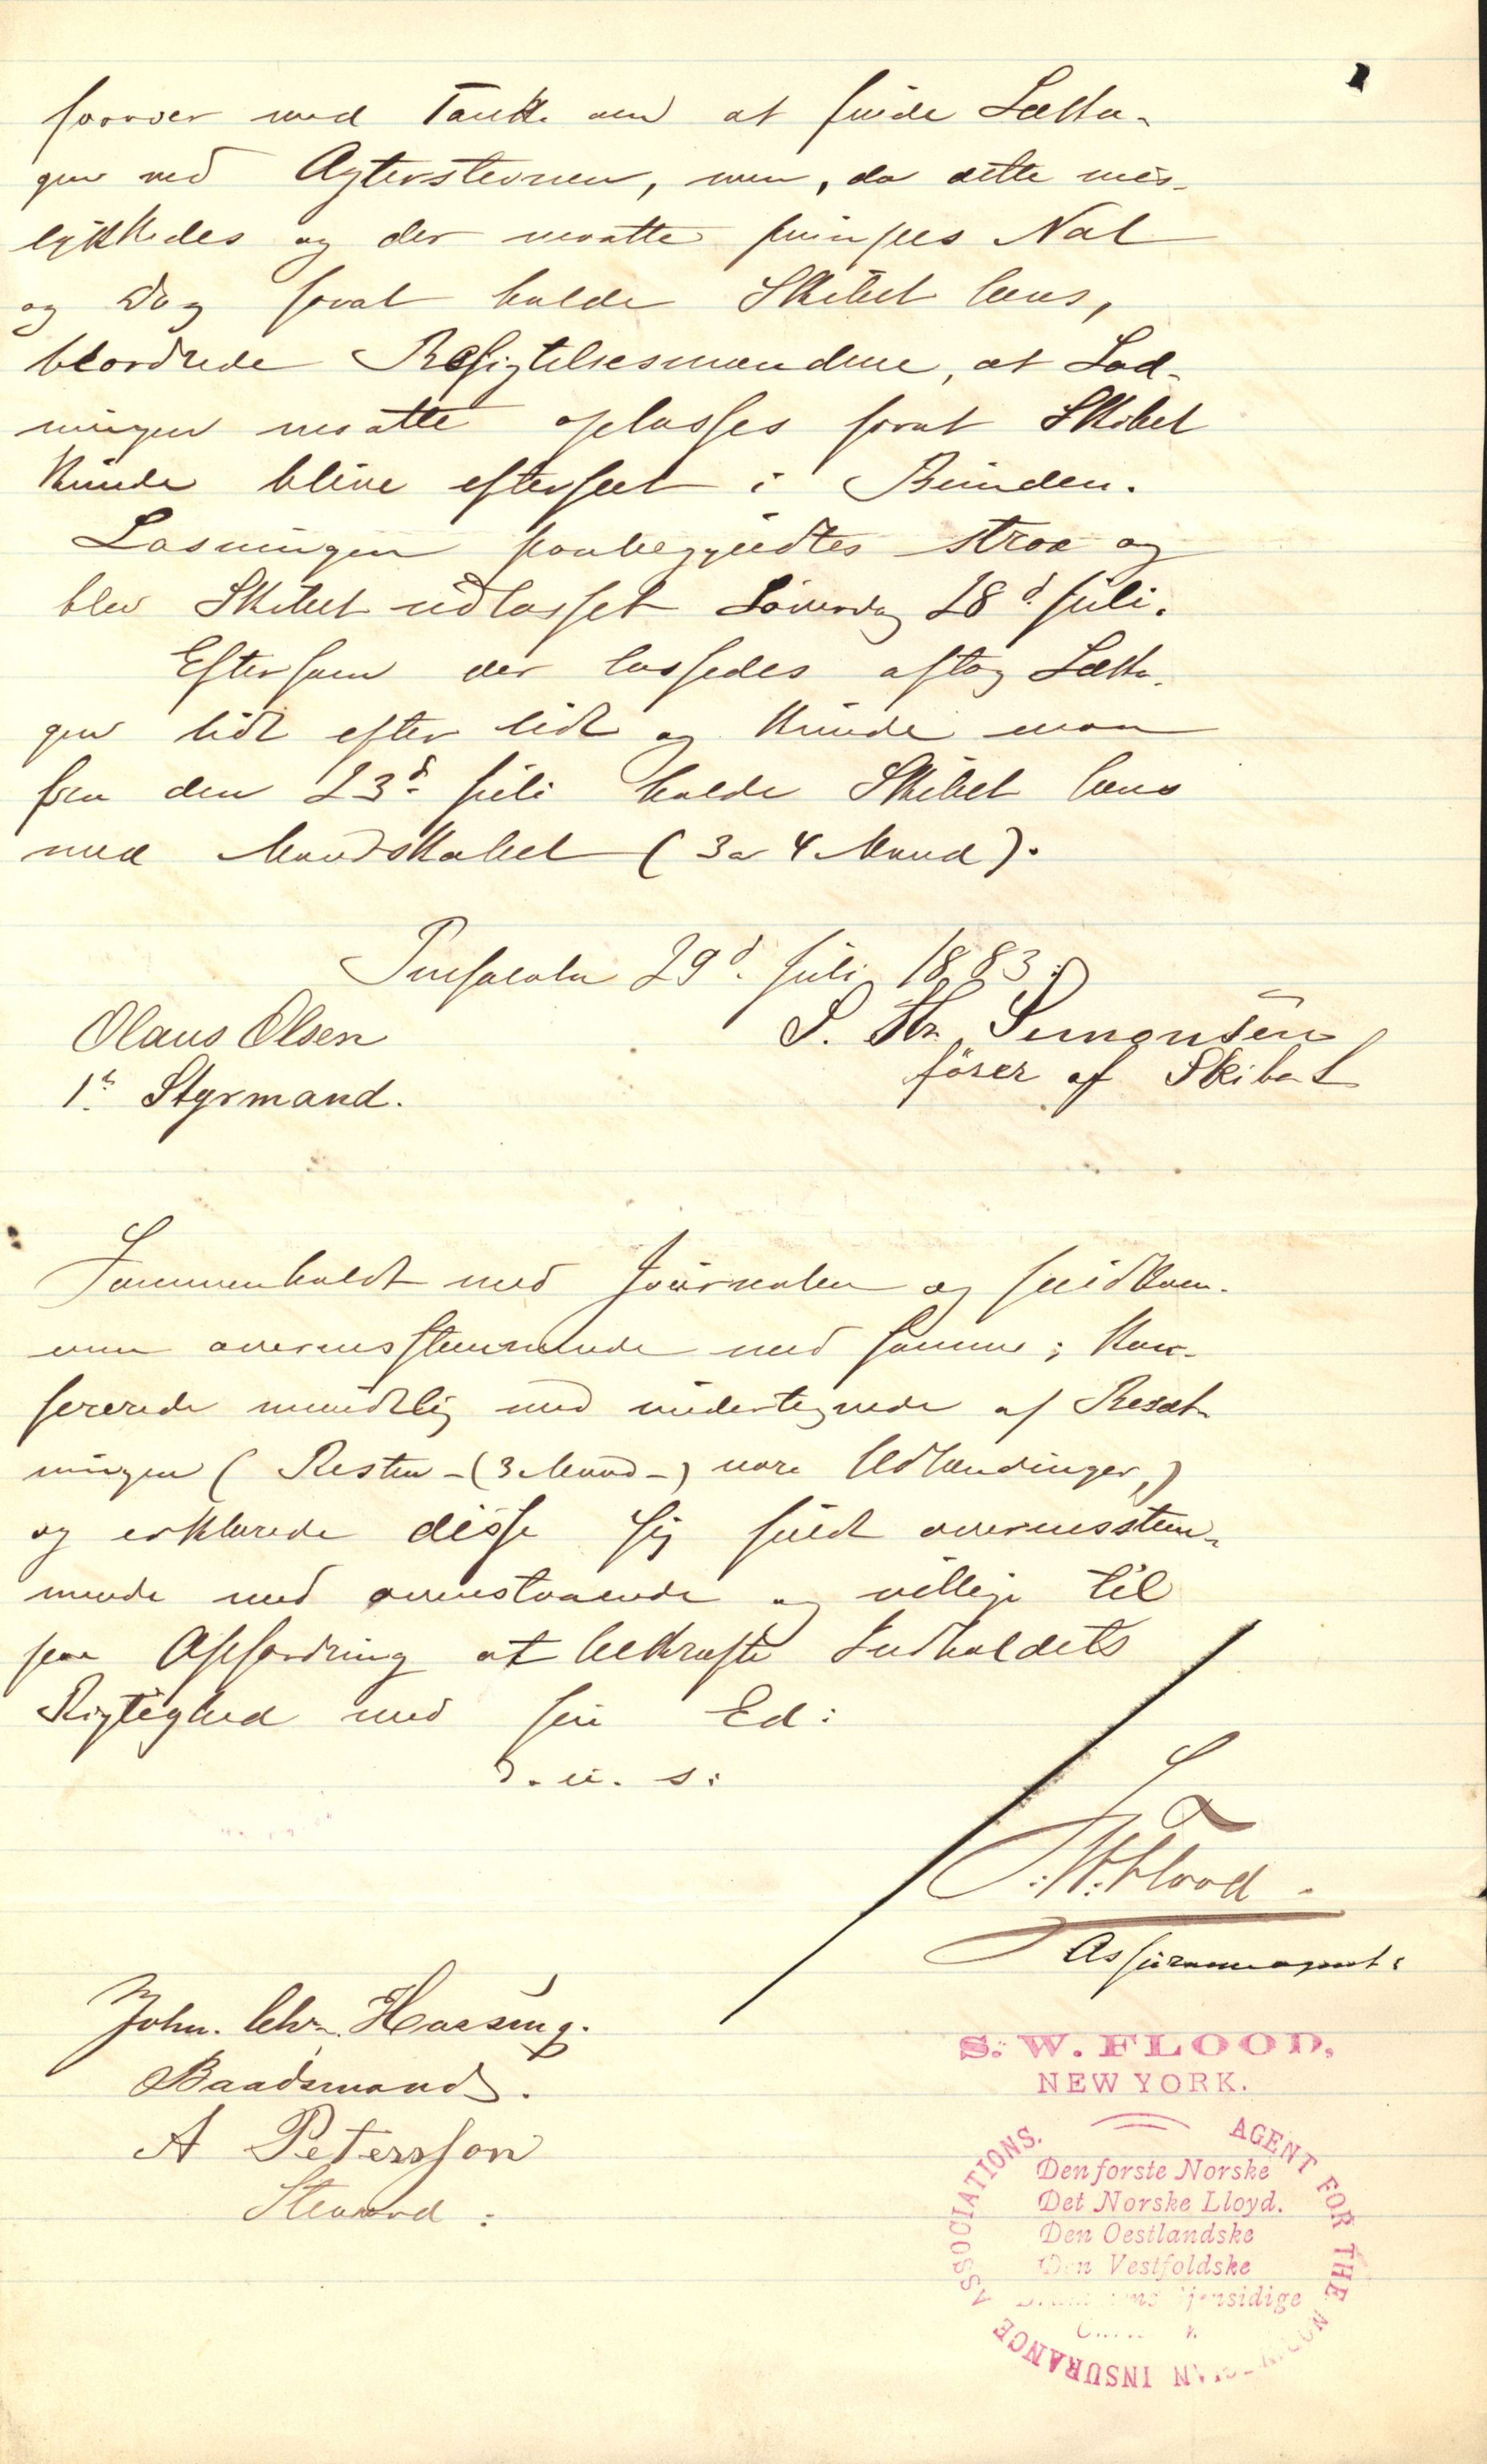 forover med Tanke om at finde Lækka-
gen ved Agterstevnen, men, da dette mis-
lykkedes og der maatte pumpes Nat
og Dag forat holde Skibet læns,
beordrede Besigtelsesmændene, at Lad-
ningen maatte oplosses forat Skibet
kunde blive efterseet i Bunden.
Losningen paabegyndtes strax og
blev Skibet udlosset Löverdag 28d Juli.
Eftersom der lossedes aftog Lækka-
gen lidt efter lidt og kunde man
fra den 23d Juli holde Skibet læns
med Mandskabet (3 a 4 Mand).
Pensacola 29d Juli 1883:
Olaus Olsen
1e Styrmand.
S. Simonsen
förer af Skibet
Sammenholdt med Journalen og
overensstemmende med samme; Kon-
fererede mundtlig med undertegnede af Besæt-
ningen (Resten - (3 Mand -) vare Udlændinger,)
og erklærede disse sig fuldt overensstem-
mende med ovenstaaende og villige til
paa Opfordring at bekræfte Indholdets
Rigtighed med sin Ed:
D. u. s:
S. W. Flood.
Assuranceagent:
John. Chr. Hassing.
Baadsmand.
A Petersson
Steward:
S. W. FLOOD,
NEW YORK.
AGENT FOR THE NORWEGIAN INSURANCE ASSOCIATIONS.
Den forste Norske
Det Norske Lloyd.
Den Oestlandske
Den Vestfoldske